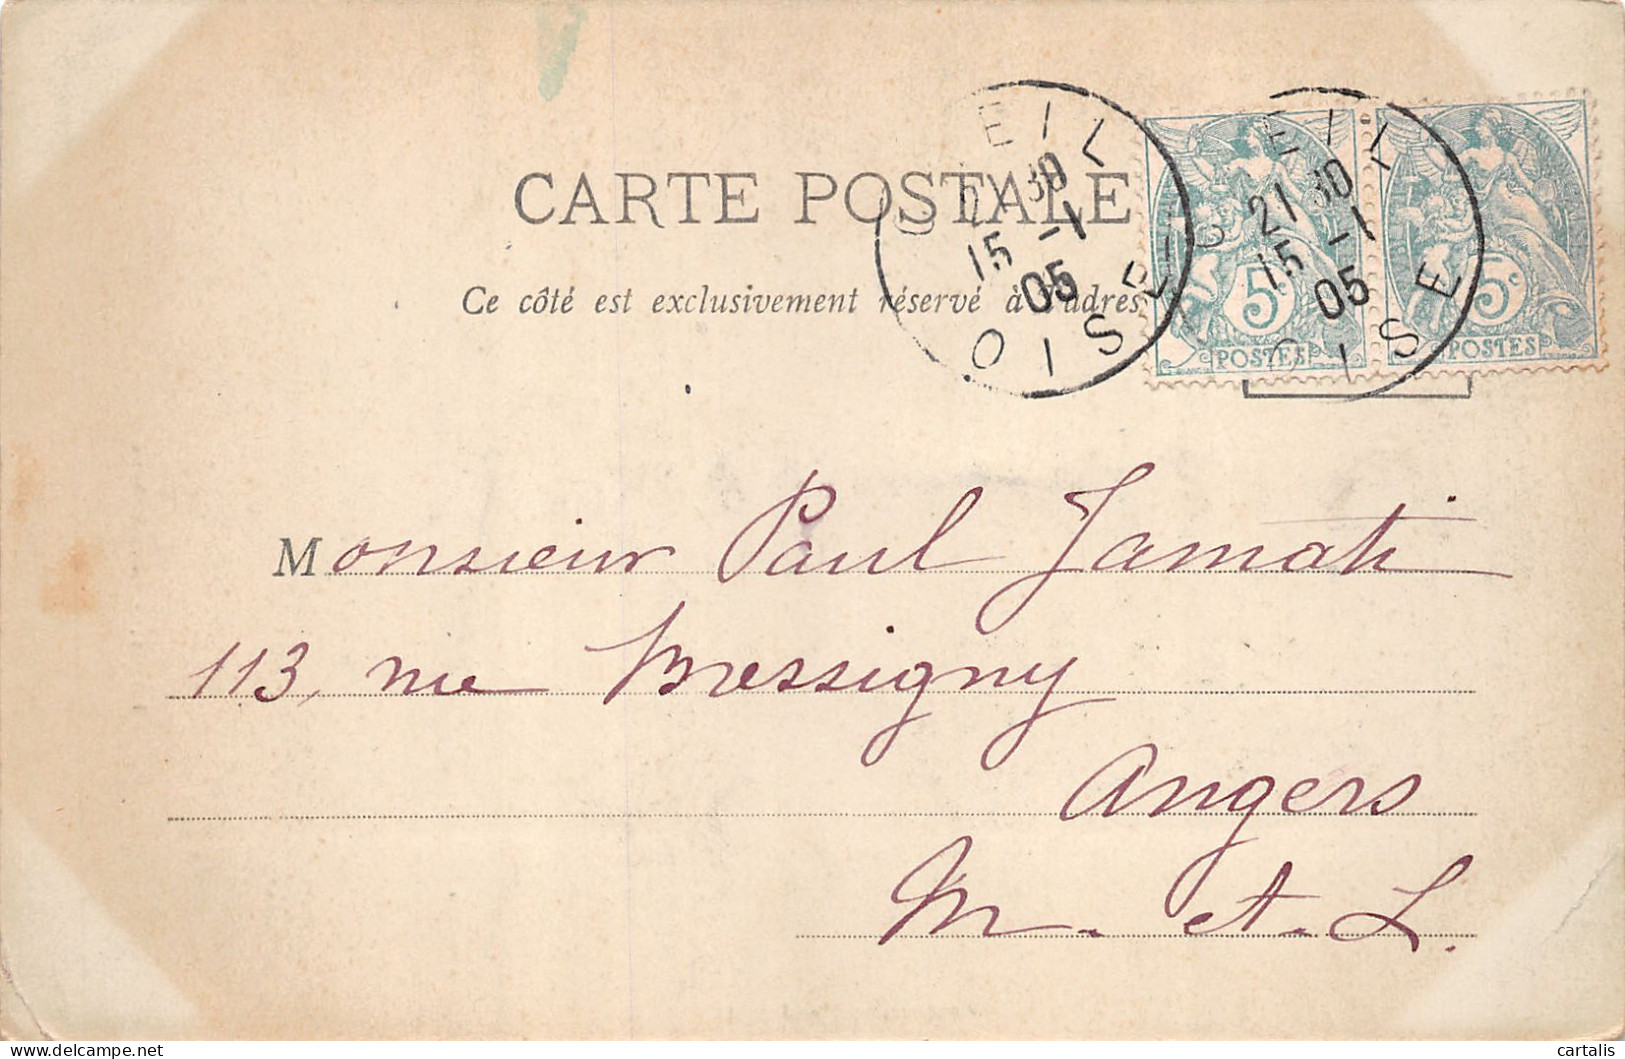 CARTE POSTALE
Ce côté est exclusivement réservé à l'adres
CREIL
21 30
15 -1
05
OISE
CREIL
21 30
15 -1
05
OISE
5c
POSTES
5c
POSTES
Monsieur Paul Jamati
113, rue Bressigny
Angers
M. et. L.
delcampe.net
cartalis